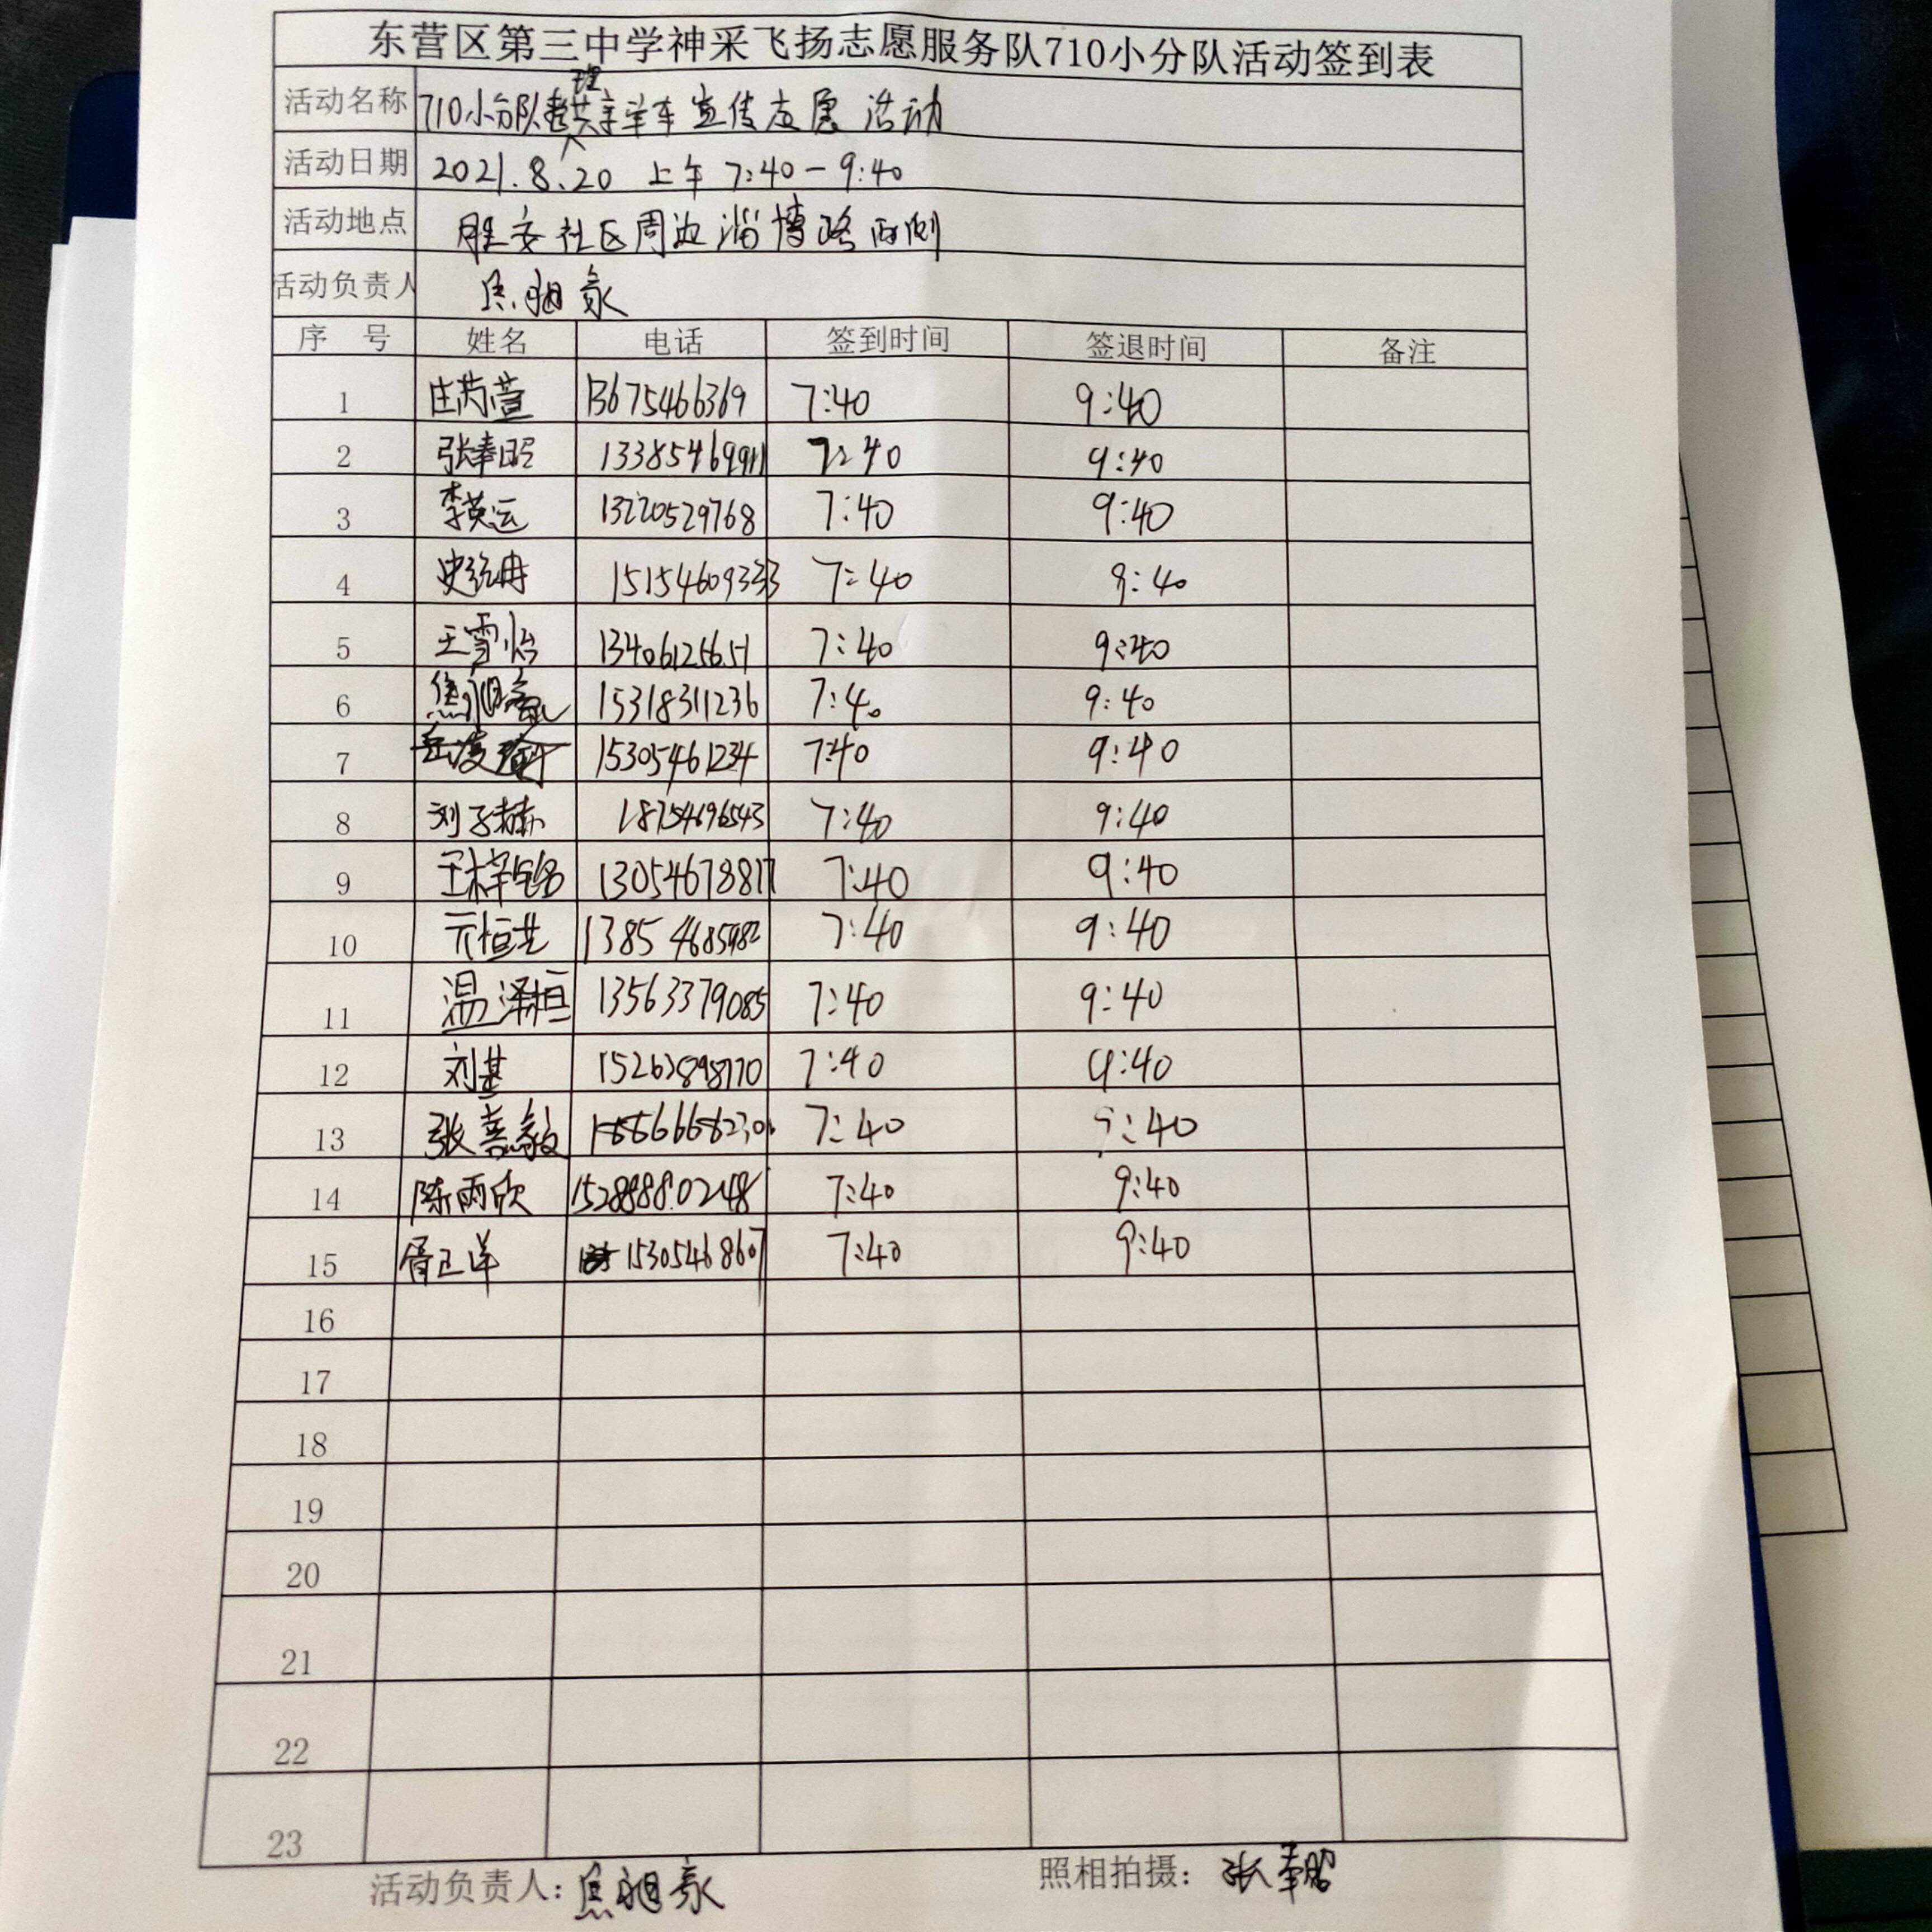 东营区第三中学神采飞扬志愿服务队710小分队活动签到表
活动名称 710小分队整理共享单车宣传志愿活动
活动日期 2021.8.20 上午 7:40-9:40
活动地点 胜安社区周边淄博路两侧
活动负责人 焦昶豪
序号 姓名 电话 签到时间 签退时间 备注
1 庄芮萱 13675466369 7:40 9:40
2 张奉昭 13385469911 7:40 9:40
3 李英运 13220529768 7:40 9:40
4 15154609333 7:40 9:40
5 王雪怡 13406125651 7:40 9:40
6 焦昶豪 15318311236 7:40 9:40
7 15305461234 7:40 9:40
8 刘子赫 18754696543 7:40 9:40
9 王梓铭 13054678817 7:40 9:40
10 亓恒艺 13854685982 7:40 9:40
11 温泽桓 13563379085 7:40 9:40
12 刘基 15263898770 7:40 9:40
13 张善毅 7:40 9:40
14 陈雨欣 15288880248 7:40 9:40
15 胥正洋 15305468607 7:40 9:40
16
17
18
19
20
21
22
23
活动负责人：焦昶豪 照相拍摄：张奉昭